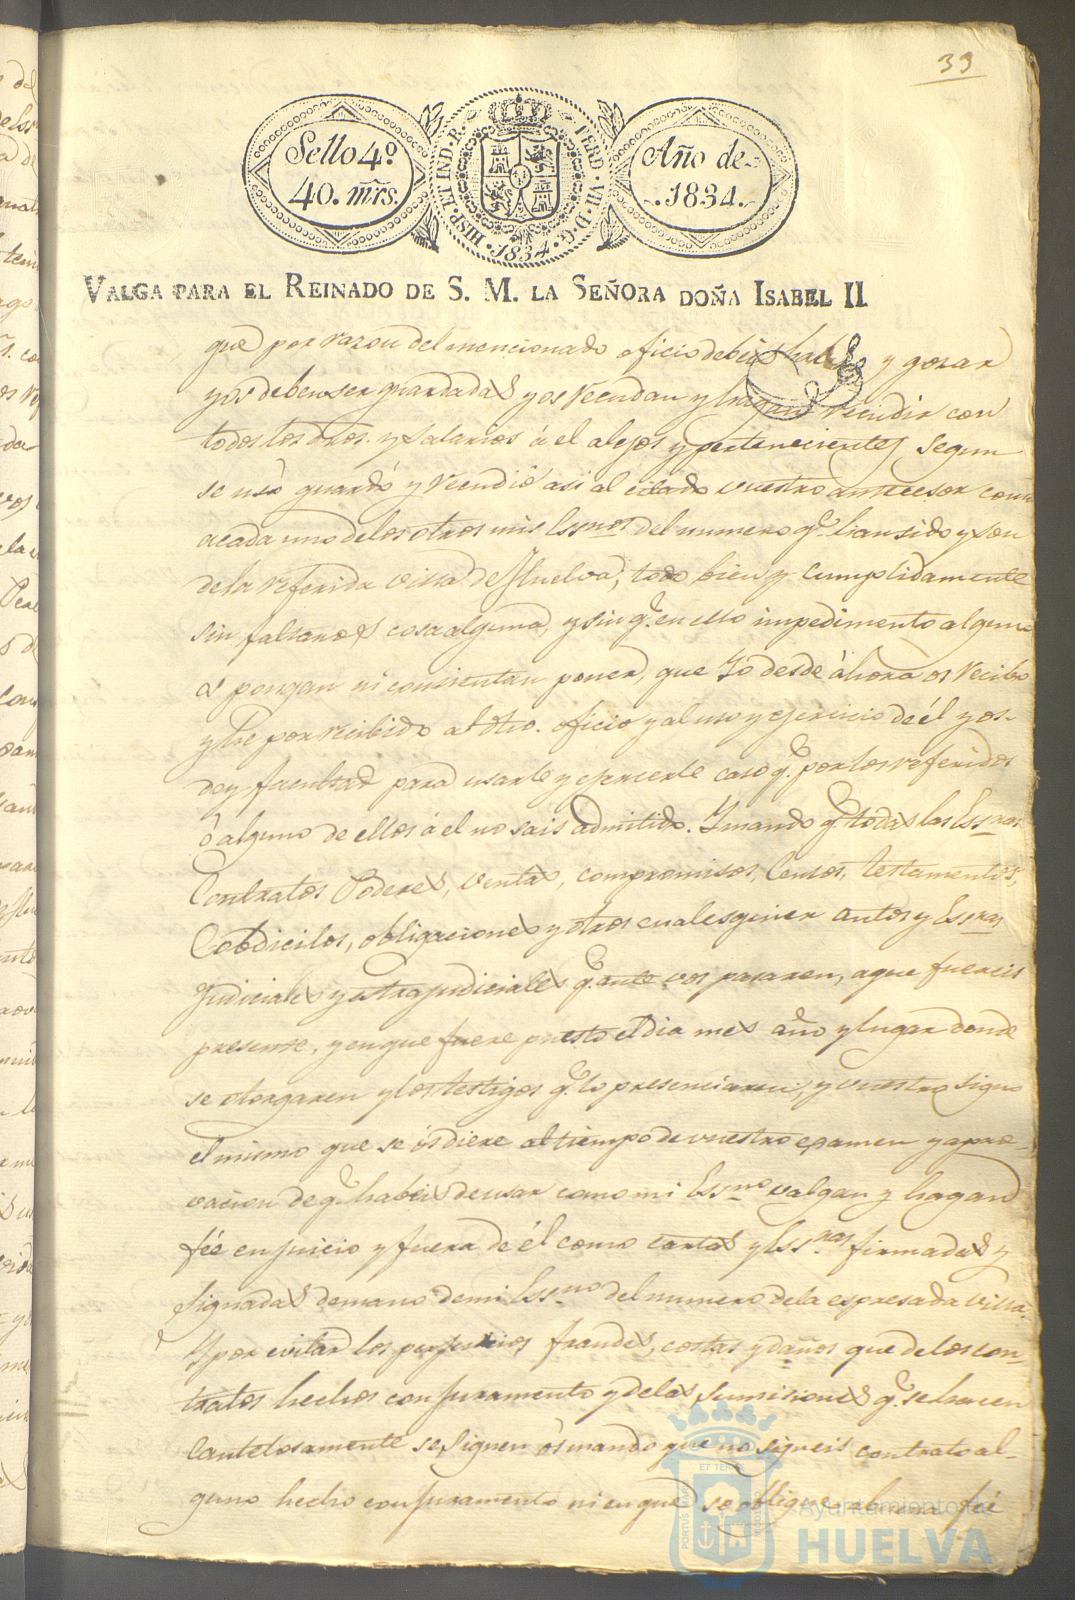 33
Sello 4º
40. mrs.
HISP. ET IND. R. FERD. VII. D. G. 1834.
Año de
1834.
VALGA PARA EL REINADO DE S. M. LA SEÑORA DOÑA ISABEL II
que por razon del mencionado oficio debeis haber y gozar
y os deben ser guardadas y os recudan y hagan recudir con
todos los dros. y salarios á el alejos y pertenecientes segun
se usó guardó y recudió asi al citado vuestro antecesor como
acada uno delos otros mis Essnos del numero q.e han sido y son
dela referida villa de Huelva, todo bien y cumplidamente
sin faltaros cosa alguna, y sin q.e en ello impedimento alguno
os pongan ni consientan poner, que Yo desde áhora os recibo
y he por recibido al dho. oficio y al uso y ejercicio de él y os
doy facultad para usarle y ejercerle caso q.e por los referidos
ó alguno de ellos á el no seais admitido. Y mando q.e todas las Essras
Contratos Poderes, ventas, compromisos, Censos, testamentos,
Cobdicilos, obligaciones y otros cualesquier autos y Essras
Judiciales y extrajudiciales q.e ante vos pasaren, aque fuereis
presente, y en que fuere puesto el dia mes año y lugar donde
se otorgaren y los testigos q.e lo presenciaren, y vuestro signo
el mismo que se ós diere al tiempo de vuestro examen y apro=
vacion de q.e habeis de usar como mi Essno valgan y hagan
fée en juicio y fuera de él como cartas y Essras firmadas y
signadas de mano de mi Essno del numero dela espresada villa.
Y por evitar los perjuicios fraudes, costas y daños que de los con=
tratos hechos con juramento y delas sumisiones q.e se hacen
Cautelosamente se siguen ós mando que no signeis contrato al=
guno hecho con juramento ni en que se obligue a buena fée
PORTUS MARIS ET TERRE CUSTODIA
Ayuntamiento de
HUELVA